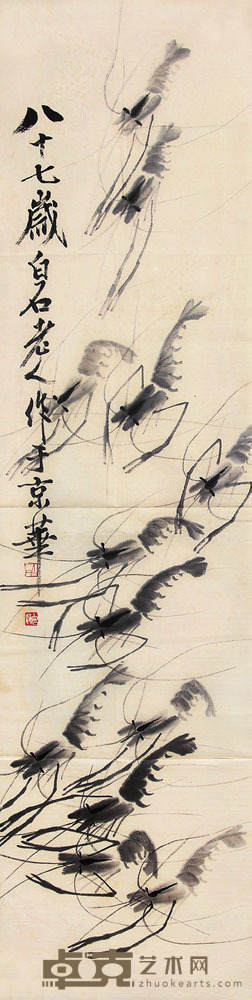 八十七歲白石老人作于京華
卓克艺术网
zhuokearts.com